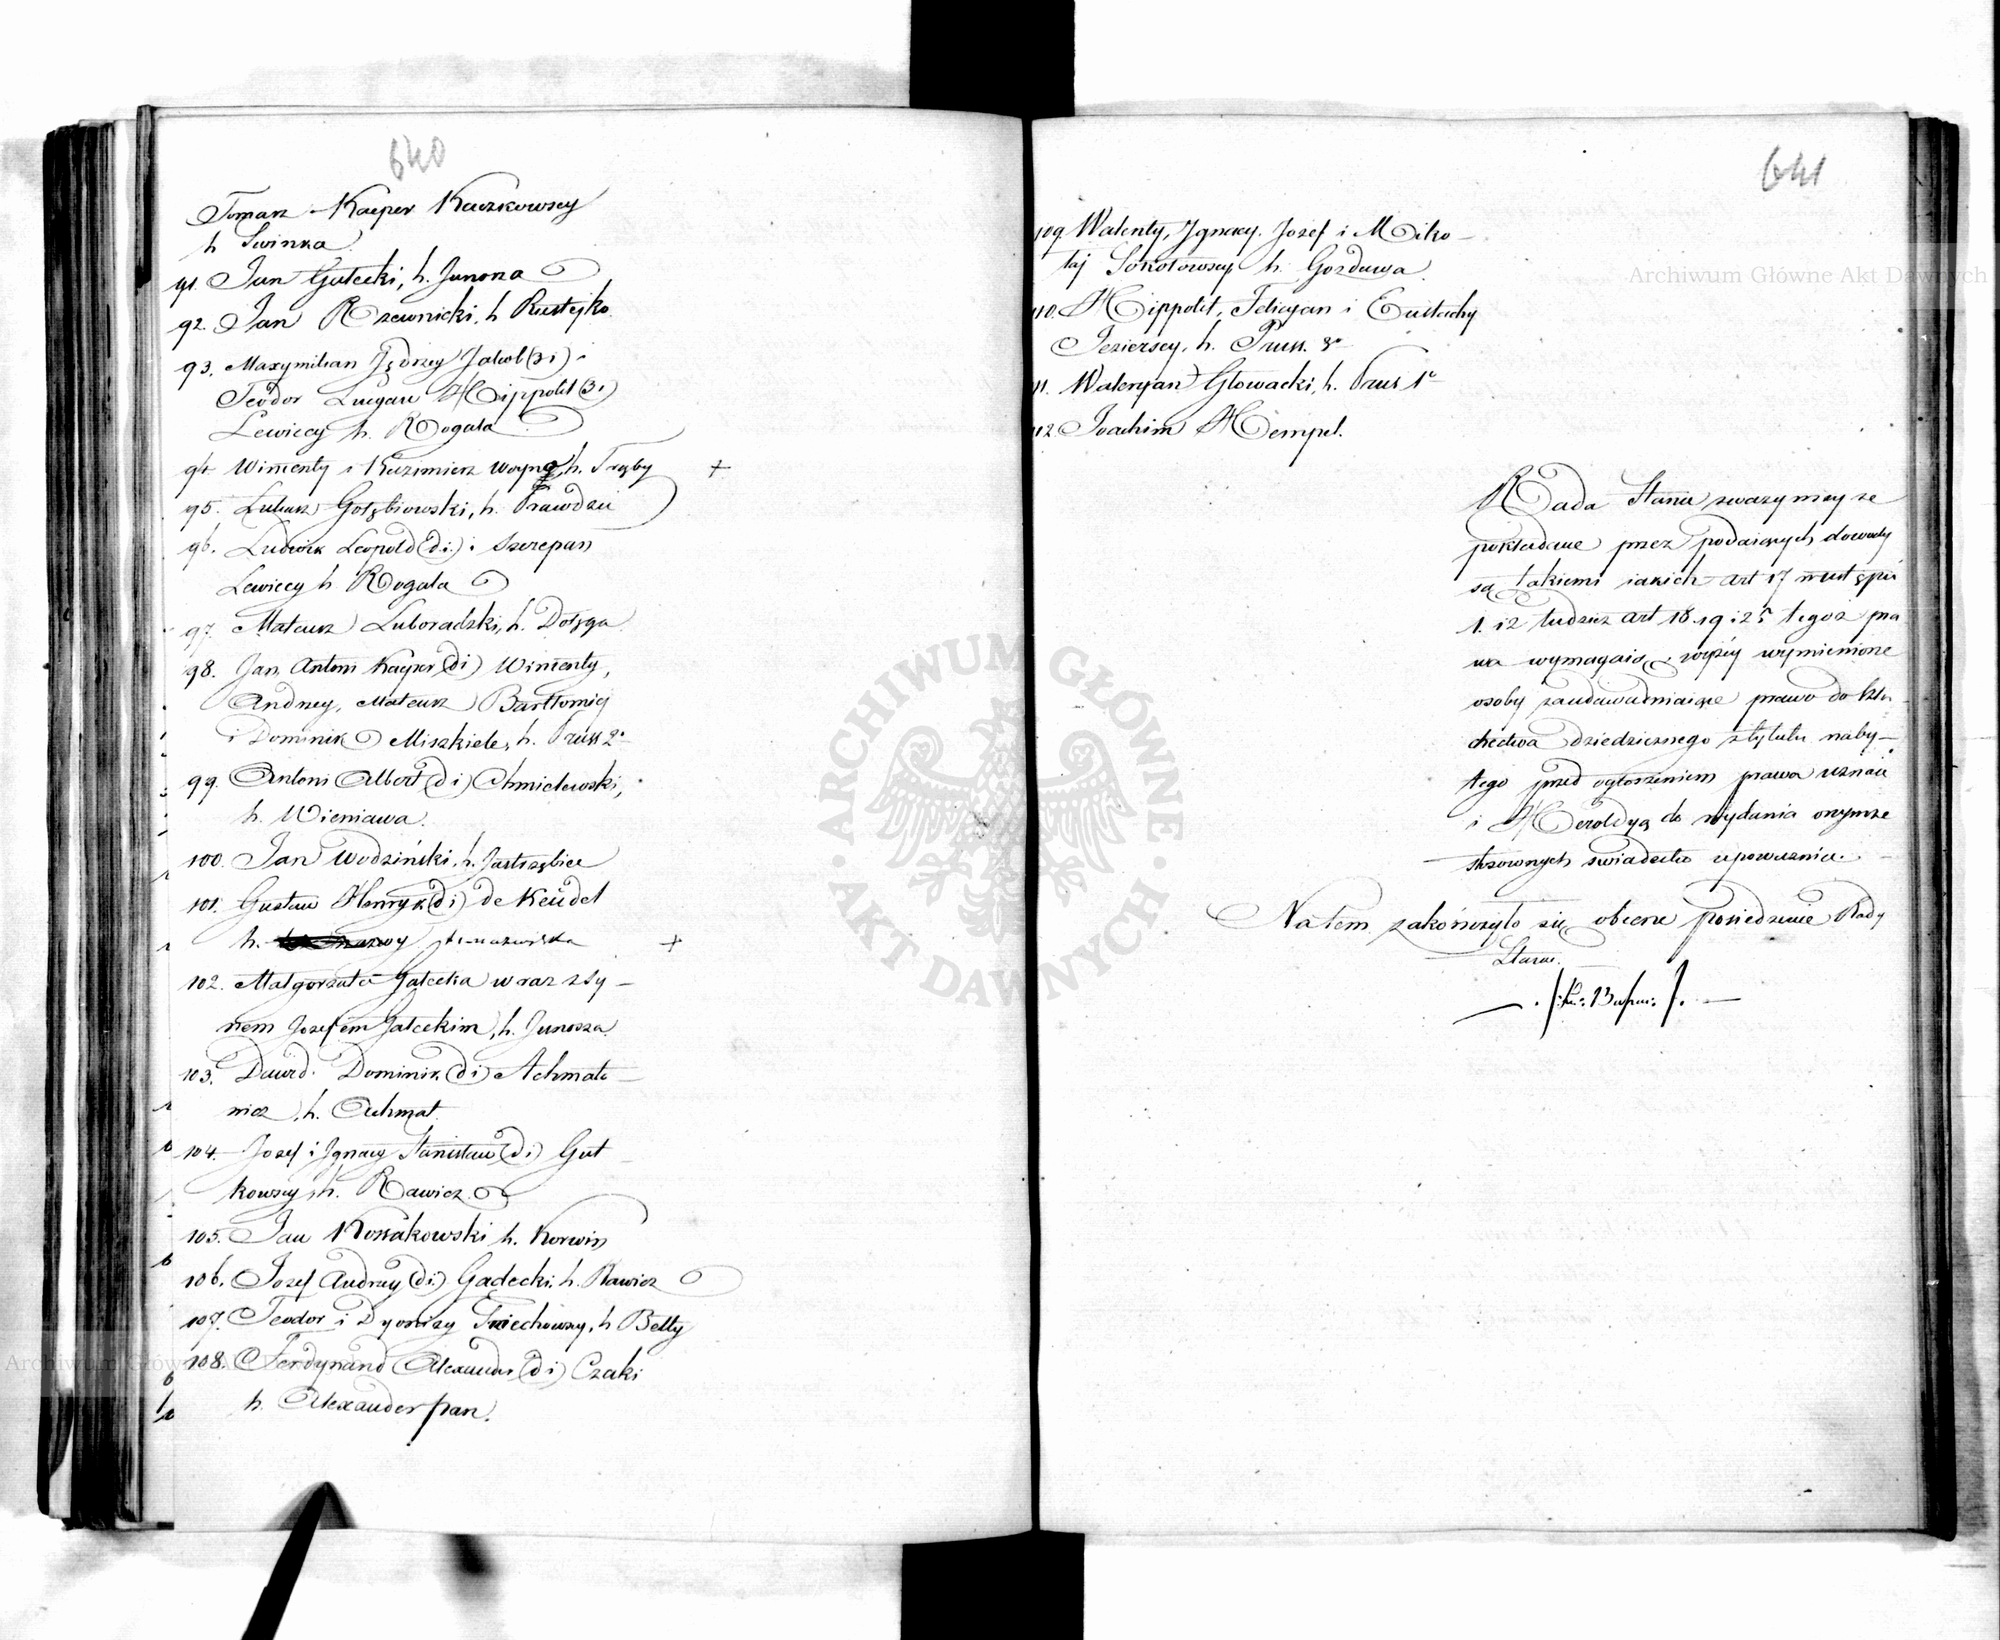 640
Tomasz Kacper Kaczkowscy
h Swinka
91. Jan Gałecki, h. Junosza
92. Jan Rzewnicki, h
93. Maxymilian Jędrzey Jakub (3 i) i
Teodor Hippolit (3 i)
Lewiccy h. Rogala
94. Wincenty i Kazimierz Woyno, h. Trąby +
95. Łukasz Gołębiowski, h. Prawdzic
96. Ludwik Leopold (d i) i Szczepan
Lewiccy h. Rogala
97. Mateusz Luboradzki, h. Dołęga
98. Jan Antoni Kacper (d i) Wincenty,
Andrzey, Mateusz Bartłomiey
i Dominik Miszkiele, h. Pruss 2o
99. Antoni Albert (d i) Chmielewski,
h. Wieniawa.
100. Jan Wodziński, h. Jastrzębiec
101. Gustaw Henryk (d i) de Keudel
h. nazwiska +
102. Małgorzata Gałecka wraz z Sy-
nem Józefem Gałeckim, h. Junosza
103. Dawid Dominik (d i) Achmato-
wicz, h. Achmat
104. Jozef i Ignacy Stanisław (d i) Gut-
kowscy, h. Rawicz
105. Jan Kossakowski h. Korwin
106. Jozef Andrzey (d i) Gądecki, h. Rawicz
107. Teodor i Dyonizy h Bełty
108. Ferdynand Alexander (d i) Czaki
h. Alexander pan.
641
109. Walenty, Ignacy, Jozef i Miko-
łaj Sokołowscy h. Gozdawa
110. Hippolit, Felicyan i Eustachy
Jeziersey, h. Pruss. 3o
111. Waleryan Głowacki, h. Prus 1o
112. Joachim Hempel.
Rada Stanu zważywszy że
pokładane przez podaiących dowody
są takiemi iakich art 17 w ustępie
1. i 2 tudzież art 18. 19 i 25 tegoż pra
wa wymagaią, wyżey wymienione
osoby zaudawadniaiące prawo do szla
chectwa dziedzicznego z tytułu naby-
tego przed ogłoszeniem prawa uznaie
i Heroldyą do wydania onymże
stosownych świadectw upoważnia.
Na tem zakończyło się obecne posiedzenie Rady
Stanu.
Archiwum Główne Akt Dawnych
Archiwum Główne Akt Dawnych
ARCHIWUM GŁÓWNE · AKT DAWNYCH ·